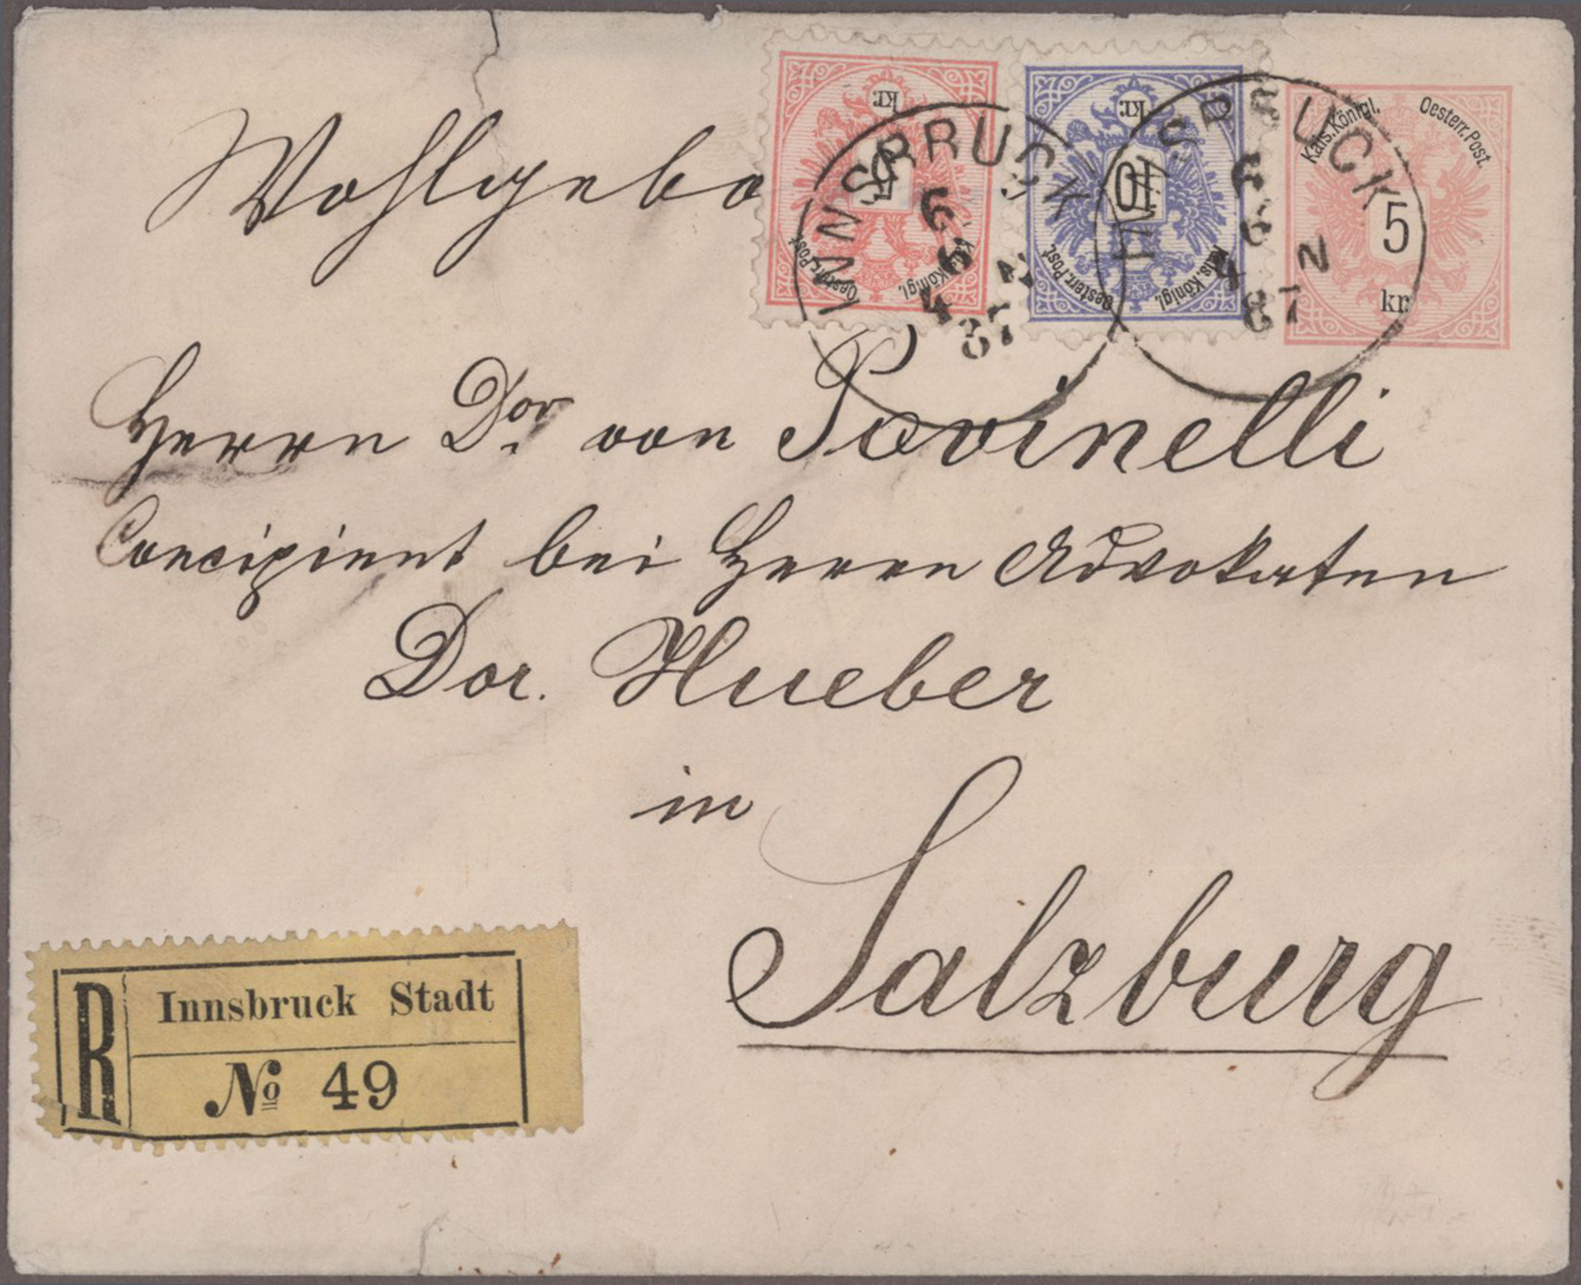 kr.
5
Oesterr.Post
Kais.Königl.
kr.
10
Oesterr.Post
Kais.Königl.
Kais.Königl. Oesterr.Post.
5
kr.
INNSBRUCK
6
6
4
87
N
SPRUCK
6
6
4
87
N
Wohlgebo
Herrn Dor. von Povinelli
Concipient bei Herrn Advokaten
Dor. Hueber
in
Salzburg
R
Innsbruck Stadt
No 49